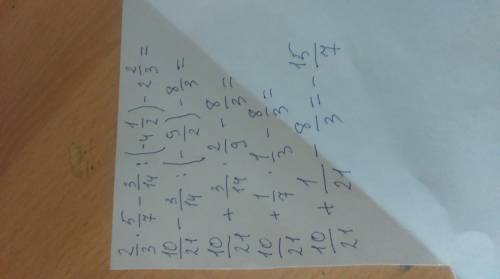 2/3 · 5/7 - 3/14 : (-4 1/2) - 2 2/3 =
10/21 - 3/14 : (- 9/2) - 8/3 =
10/21 + 3/14 · 2/9 - 8/3 =
10/21 + 1/7 · 1/3 - 8/3 =
10/21 + 1/21 - 8/3 = - 15/7